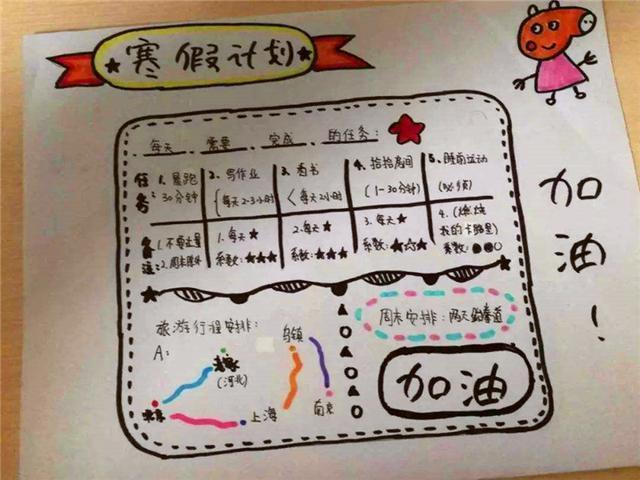 寒假计划
每天 需要 完成 的任务:
任务:
1. 晨跑
30分钟
2. 写作业
(每天2-3小时
3. 看书
(每天2小时
4. 拾拾房间
(1-30分钟)
5. 睡前运动
(必须)
备注:
1. 不要过量
2. 周末除外
1. 每天★
系数:★★★
2. 每天★
系数:★★★
3. 每天★
系数:★☆★
4. (燃烧
我的卡路里)
系数:●●○
旅游行程安排:
A:
老家
(河北)
北京
上海
乌镇
南京
周末安排:两天跆拳道
加油
加油!